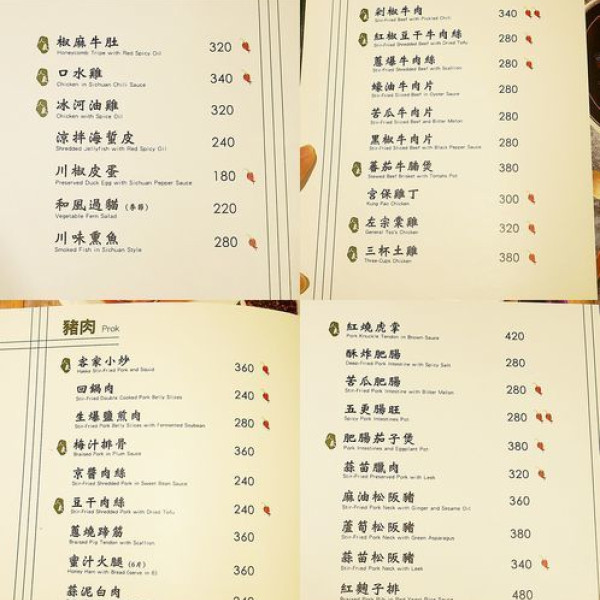 椒麻牛肚 320
Honeycomb Tripe with Red Spicy Oil
口水雞 340
Chicken in Sichuan Chili Sauce
冰河油雞 320
Chicken with Spice Oil
涼拌海蜇皮 240
Shredded Jellyfish with Red Spicy Oil
川椒皮蛋 180
Preserved Duck Egg with Sichuan Pepper Sauce
和風過貓 (季節) 220
Vegetable Fern Salad
川味熏魚 280
Smoked Fish in Sichuan Style
剁椒牛肉 340
Stir-Fried Beef with Pickled Chili
紅椒豆干牛肉絲 280
Stir-Fried Shredded Beef with Dried Tofu
蔥爆牛肉絲 280
Stir-Fried Shredded Beef with Scallion
蠔油牛肉片 280
Stir-Fried Sliced Beef in Oyster Sauce
苦瓜牛肉片 280
Stir-Fried Sliced Beef and Bitter Melon
黑椒牛肉片 280
Stir-Fried Sliced Beef with Black Pepper Sauce
蕃茄牛腩煲 380
Stewed Beef Brisket with Tomato Pot
宮保雞丁 300
Kung Pao Chicken
左宗棠雞 320
General Tso's Chicken
三杯土雞 380
Three-Cups Chicken
豬肉 Prok
客家小炒 360
Hakka Stir-Fried Pork and Squid
回鍋肉 240
Stir-Fried Double Cooked Pork Belly Slices
生爆鹽煎肉 280
Stir-Fried Pork Belly Slices with Fermented Soybean
梅汁排骨 360
Braised Pork in Plum Sauce
京醬肉絲 240
Stir-Fried Shredded Pork in Sweet Bean Sauce
豆干肉絲 240
Stir-Fried Shredded Pork with Dried Tofu
蔥燒蹄筋 360
Braised Pig Tendon with Scallion
蜜汁火腿 (6片) 360
Honey Ham with Bread (serve in 6)
蒜泥白肉 240
紅燒虎掌 420
Pork Knuckle Tendon in Brown Sauce
酥炸肥腸 280
Deep-Fried Pork Intestine with Spicy Salt
苦瓜肥腸 280
Stir-Fried Pork Intestine with Bitter Melon
五更腸旺 280
Spicy Pork Intestines Pot
肥腸茄子煲 380
Pork Intestines and Eggplant Pot
蒜苗臘肉 320
Stir-Fried Preserved Pork with Leek
麻油松阪豬 360
Stir-Fried Pork Neck with Ginger and Sesame Oil
蘆筍松阪豬 380
Stir-Fried Pork Neck with Green Asparagus
蒜苗松阪豬 340
Stir-Fried Pork Neck with Leek
紅麴子排 480